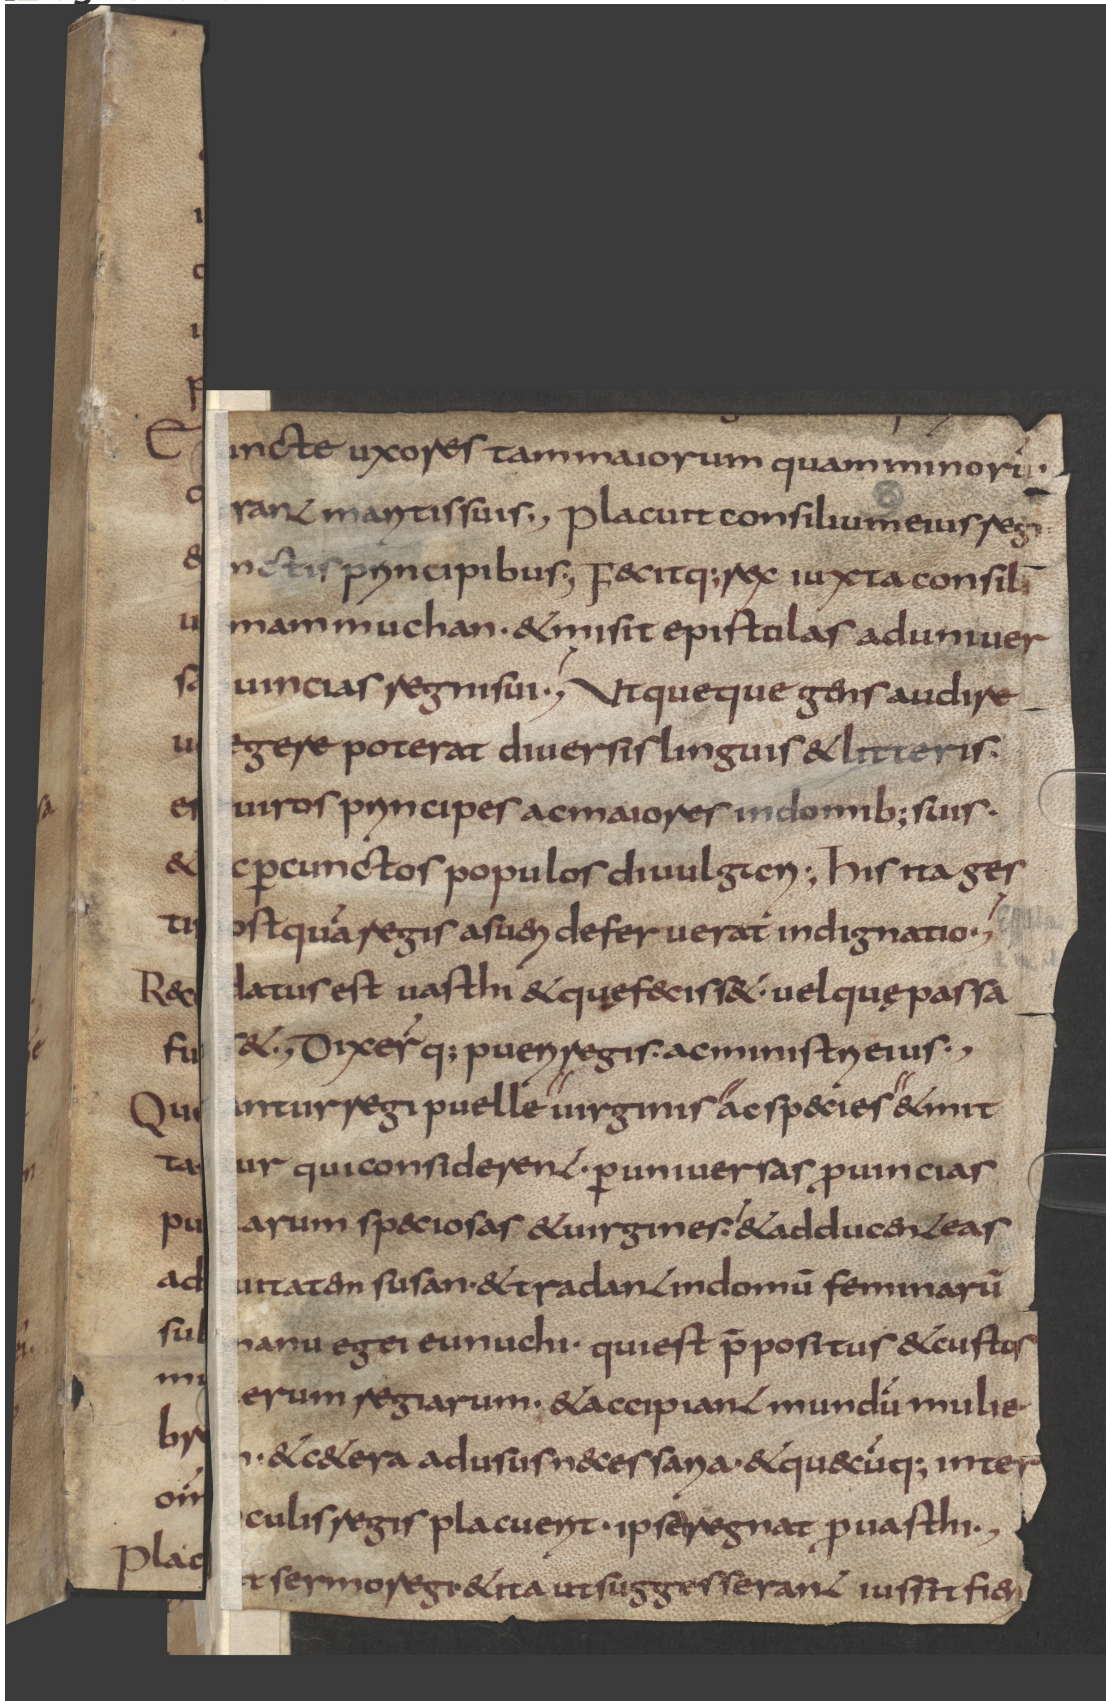 C unctę uxores tam maiorum quam minorū·
d eran& maritissuis·, Placuit consilium eius regi
& nctis principibus·, F&citq; rex iuxta consiliū
u mammuchan· & misit epistulas aduniuer
sa uincias regnisui·, Vt queque gens audire
u egere poterat diuersis linguis & litteris·
es uiros principes ac maiores indomib; suis·
& c pcunctos populos diuulgieri·, his ita ges
tis ostquā regis asueri deferuerat indignatio·,
Rec datus est uasthi & quęf&ciss&· uel quę passa
fui ss&·, Dixer̄q; pueri regis· ac ministri eius·,
Que antur regi puelle uirginis ac sp&cies & mit
tan ur qui consideren&· p uniuersas puincias
pu larum sp&ciosas & uirgines· & adducen& eas
ad uitatem susan· & tradan& indomū feminarū
sub manu egei eunuchi· qui est p̄positus & custos
mu erum regiarum· & accipian& mundū mulie
bre m· & c&era adusus n&cessaria· & qu&cūq; inter
om̄ oculis regis placuerit· ipse regnat p uasthi·,
Plac it sermo regi· & ita ut suggesseran& iussit fieri